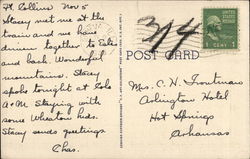 Ft. Collins Nov 5
Stacey met me at the
train and we have
driven together to Estes
and back. Wonderful
mountains. Stacey
spoke tonight at Colo
A+M. Staying with
some Wheaton kids.
Stacey sends greetings
Chas.
314
1¢
POST CARD
Mrs. C. H. Troutman
Arlington Hotel
Hot Springs
Arkansas